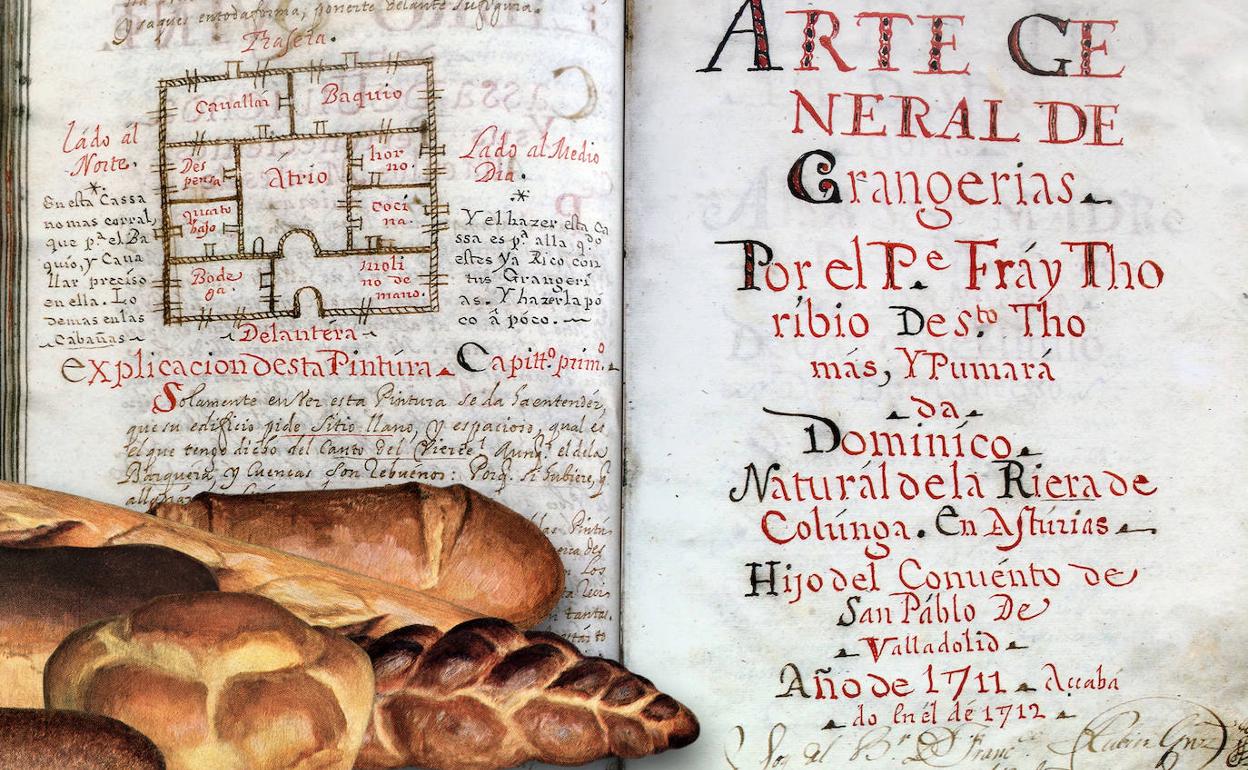 y saques entodaforma, ponerte delante su figura.
Traseta.
Cauallar
Baquio
Lado al
Norte.
Des
pensa
Átrio
hor
no.
Lado al Medio
Dia.
quarto
bajo
coci
na.
Bode
ga.
moli
no de
mano.
En esta Cassa
no mas corral,
que pª el Ba
quio, y Caua
llar preciso
en ella. Lo
demas en las
Cabañas
Y el hazer esta Ca
ssa es pª alla qdo
estes ya Rico con
tus Grangeri
as. Y hazerla po
co â póco.
Delantéra
explicacion desta Pintúra. Capittº prim.º
Solamente en Ver esta Pintura se da ha entender,
que su edificio pide Sitio llano, y espacioso, qual es
el que tengo dicho del Canto del Vierce! Aunqe. el dela
Barquera, y Cuencas son Tebuenos: Porq. si hubiere, q.
ARTE GE
NERAL DE
Grangerias.
Por el Pe. Fráy Tho
ribio De sto. Tho
más, Y Pumará
da
Dominíco.
Naturál de la Riera de
Colúnga. En Astúrias
Hijo del Conuénto de
San Páblo De
Valladolid
Año de 1711 Accaba
do En él dé 1712
Soy del Br. D. Franco